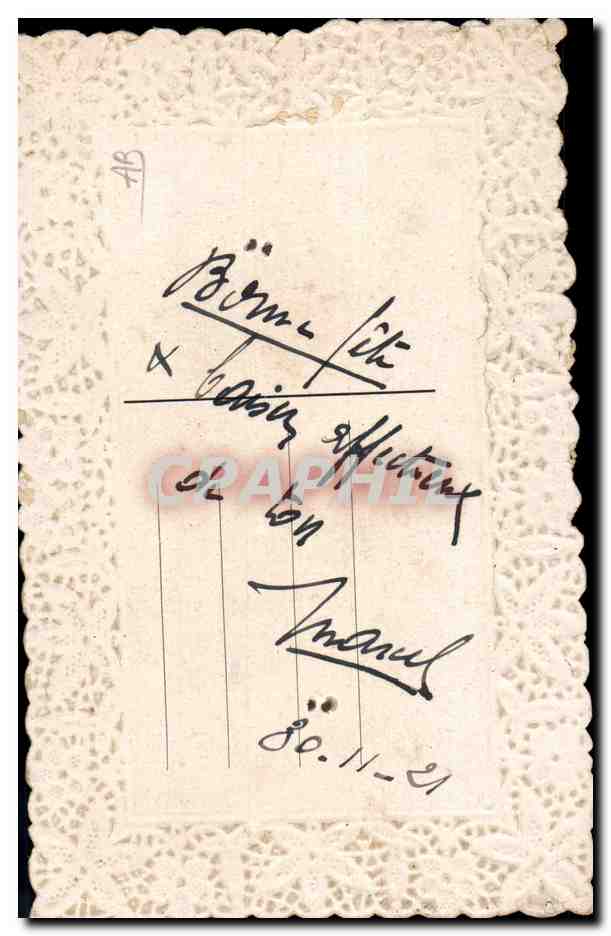 AB
Bonne fête
x baisers affectueux
de ton
Marcel
30-11-21
CPAPHIL